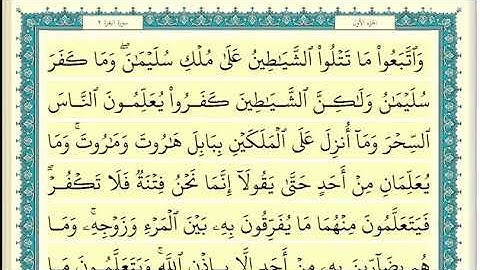 سورة البقرة ٢ الجزء الأول
وَٱتَّبَعُوا۟ مَا تَتْلُوا۟ ٱلشَّيَٰطِينُ عَلَىٰ مُلْكِ سُلَيْمَٰنَ ۖ وَمَا كَفَرَ
سُلَيْمَٰنُ وَلَٰكِنَّ ٱلشَّيَٰطِينَ كَفَرُوا۟ يُعَلِّمُونَ ٱلنَّاسَ
ٱلسِّحْرَ وَمَآ أُنزِلَ عَلَى ٱلْمَلَكَيْنِ بِبَابِلَ هَٰرُوتَ وَمَٰرُوتَ ۚ وَمَا
يُعَلِّمَانِ مِنْ أَحَدٍ حَتَّىٰ يَقُولَآ إِنَّمَا نَحْنُ فِتْنَةٌ فَلَا تَكْفُرْ ۖ
فَيَتَعَلَّمُونَ مِنْهُمَا مَا يُفَرِّقُونَ بِهِۦ بَيْنَ ٱلْمَرْءِ وَزَوْجِهِۦ ۚ وَمَا
هُم بِضَآرِّينَ بِهِۦ مِنْ أَحَدٍ إِلَّا بِإِذْنِ ٱللَّهِ ۚ وَيَتَعَلَّمُونَ مَا